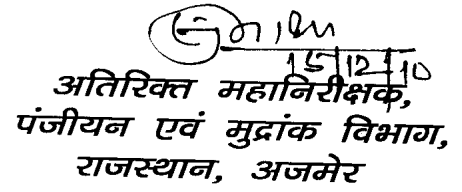 15/12/10
अतिरिक्त महानिरीक्षक,
पंजीयन एवं मुद्रांक विभाग,
राजस्थान, अजमेर